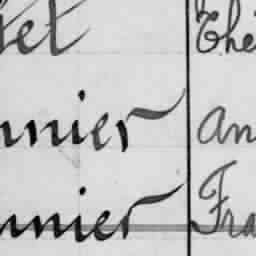 tet Thé
nnier an
unnier Fra